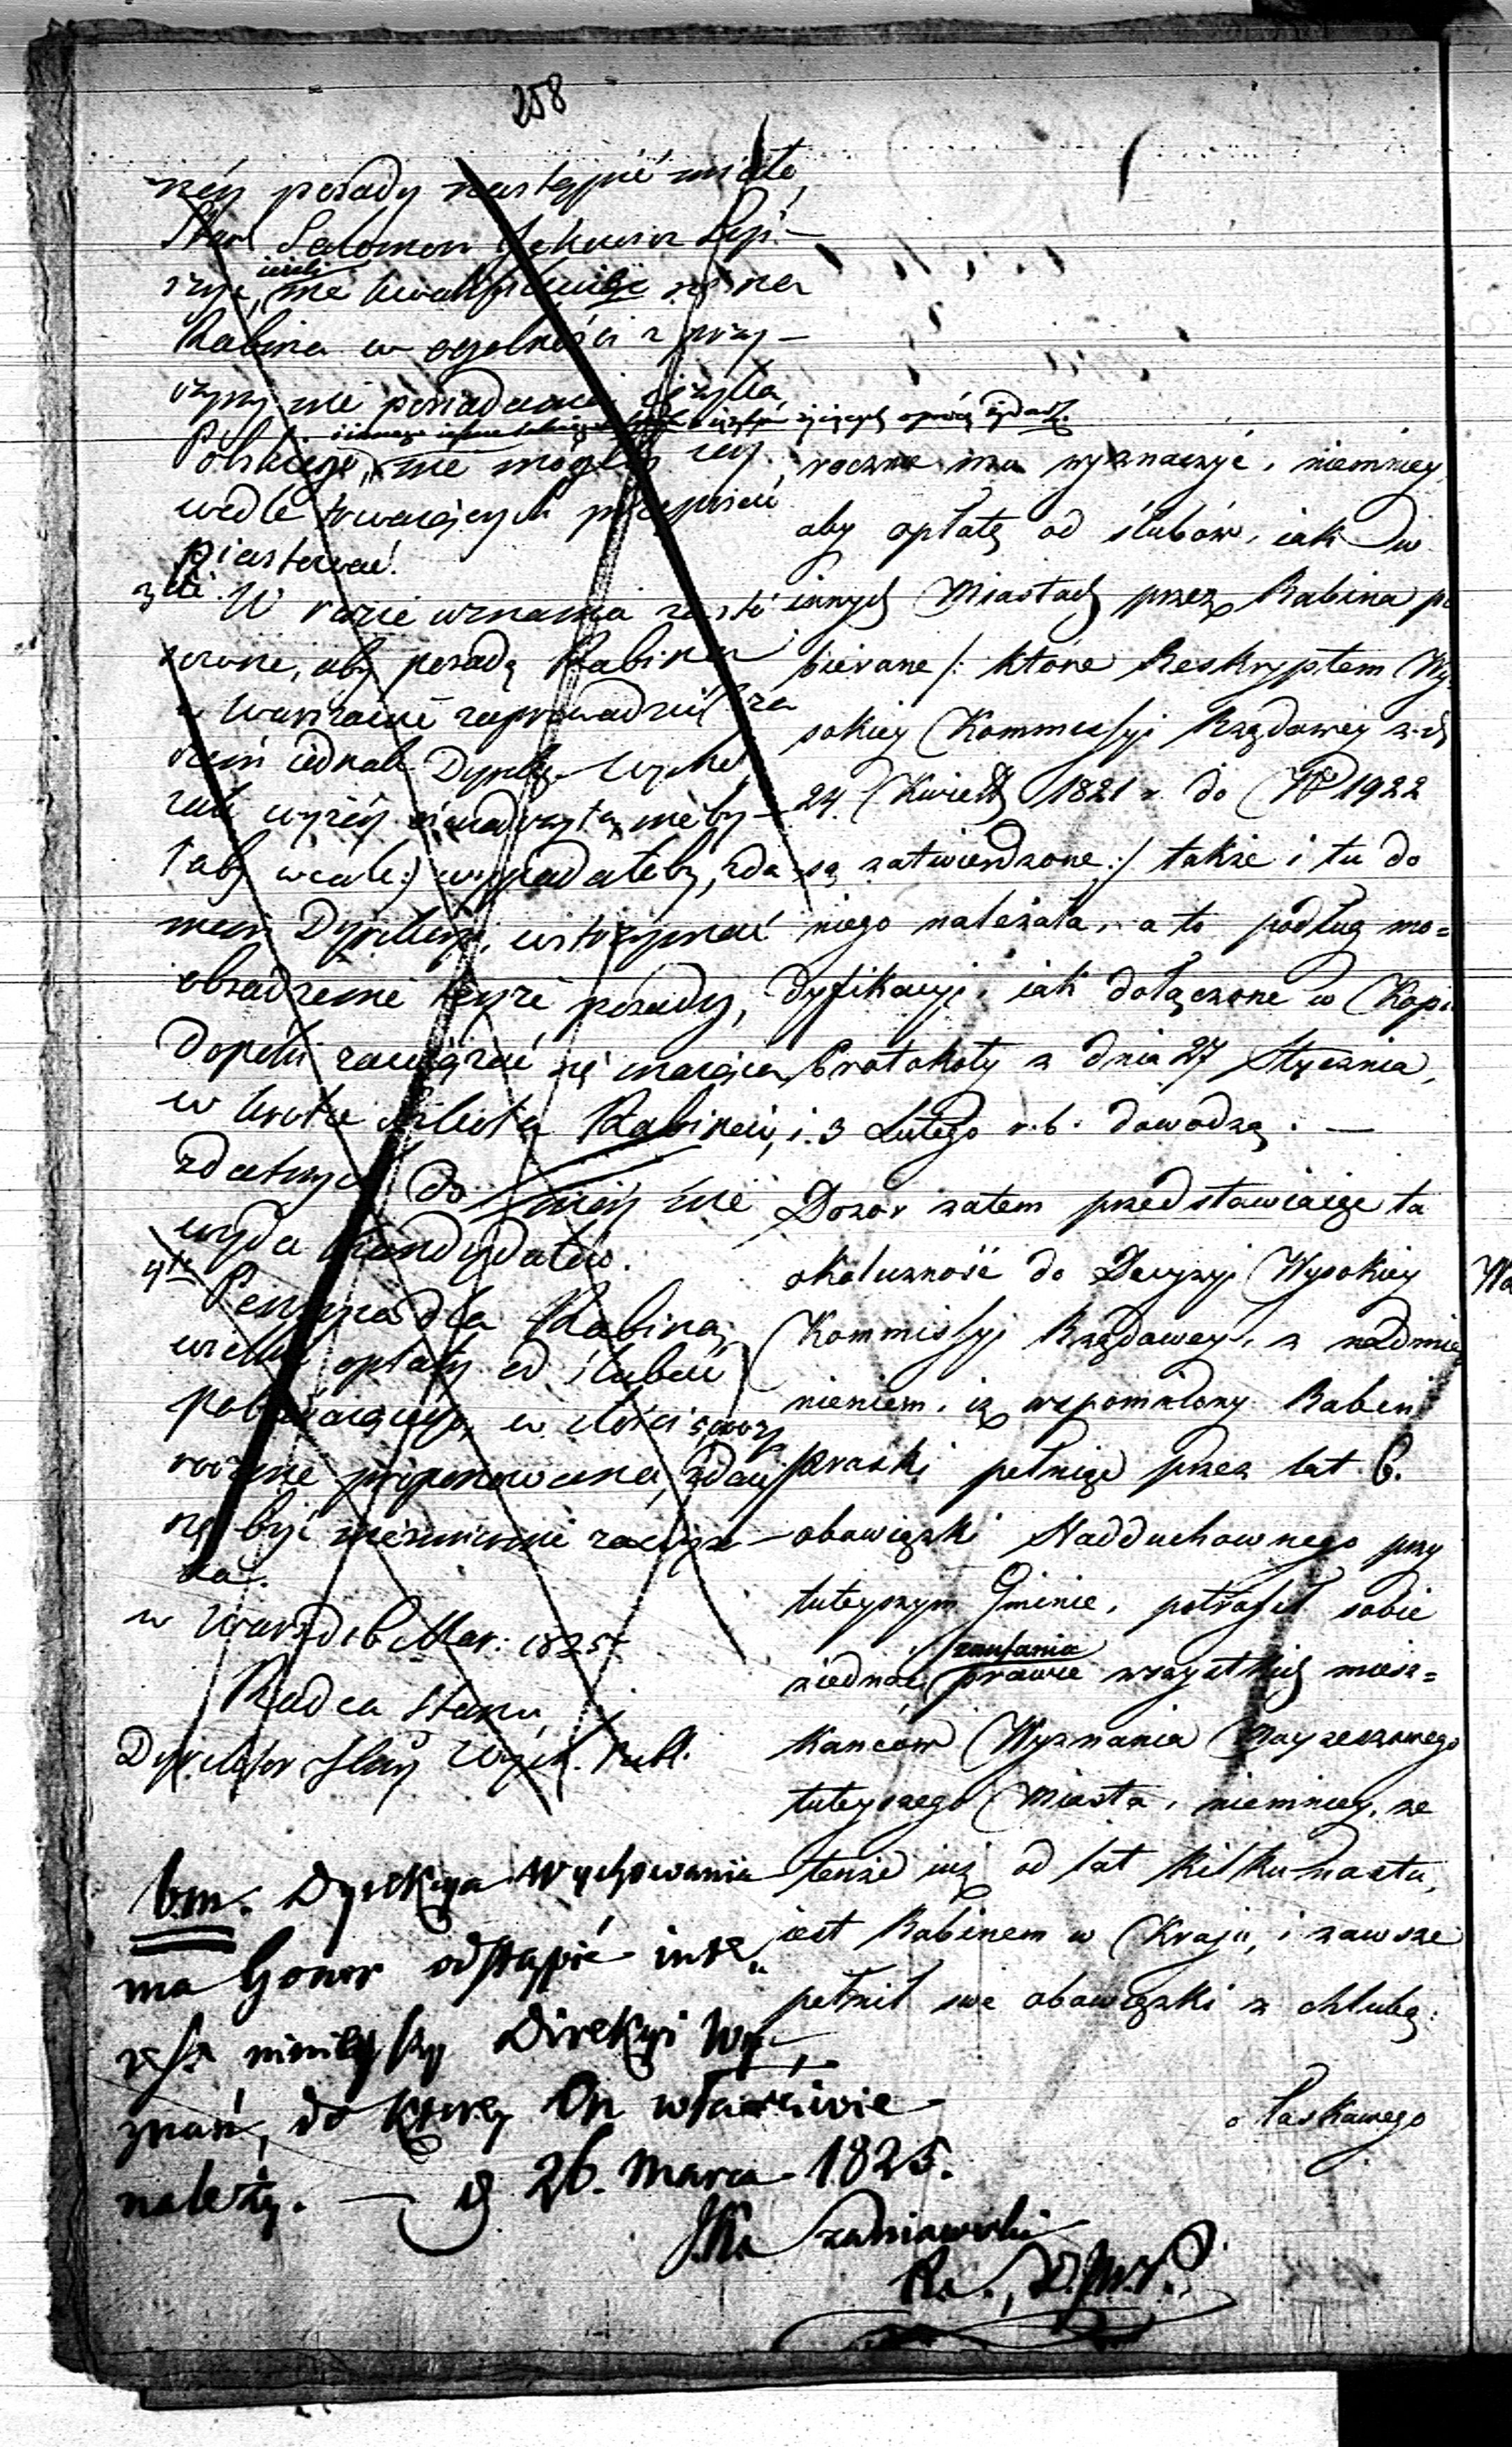 258
néy posady nastąpić miało,
Star. Salomon
iesli
nie kwalifikuiąc się na
Rabina w ogolności z przy-
czyny nie posiadania ięzyka
Polskiego, nie mógłby iey
wedle trwaiących przepisów
piastować.
3cie. W razie uznania za sto
sowne, aby posadę Rabina
w Warszawie zaprowadzić /: za
czem iednak Dyrekc. Wycho
taby wcale :/ wypadałoby, zda
niem Dyrekcyi, wstrzymać
obsadzenie teyże posady,
dopóki zawiązać się maiąca
w krotce Szkoła Rabinów,
zdatnych do niéy nie
wyda Kandydatów.
4te Pensya dla Rabina,
opłaty od ślubów
pobieraiącego, w ilości
rocznie proponowana, zdaie
się być niezmiernie
ka.
w Warsz. d. 16 Mar: 1825
Radca Stanu,
Dyrektor Jlny Wych. Publ.
b.m. Dyrekcya Wychowania
ma honor odstąpić inte„
ressa ninieyszy Direkcyi Wy-
znań, do którey On właściwie
należy. — d 26. Marca 1825.
J.K. Szaniawski
R.S., D.J.W.P.
roczne mu wyznaczyć, niemniey
aby opłatę od ślubów, iak w
innych Miastach przez Rabina po
bierane /: które Reskryptem Wy-
sokiey Kommissyi Rządowey z d.
24. Kwiet. 1821 r. do No 1922
są zatwierdzone :/ także i tu do
niego należała, a to podług mo=
dyfikacyi, iak dołączone w Kopi
Protokoły z dnia 27 Stycznia,
i 3 Lutego r. b. dowodzą. —
Dozór zatem przedstawiaiąc tą
okoliczność do Decyzyi Wysokiey
Kommissyi Rządowey, z nadmie
nieniem, iż wspomniony Rabin
praski pełniąc przez lat 6.
obowiązki Nadduchownego przy
tuteyszym Gminie, potrafił sobie
zaufania
ziednać prawie wszystkich miesz=
kańców Wyznania Moyżeszowego
tuteyszego Miasta, niemniey, że
tenże iuż od lat kilkunastu,
iest Rabinem w Kraju, i zawsze
pełnił swe obowiązki z chlubą:
o łaskawego